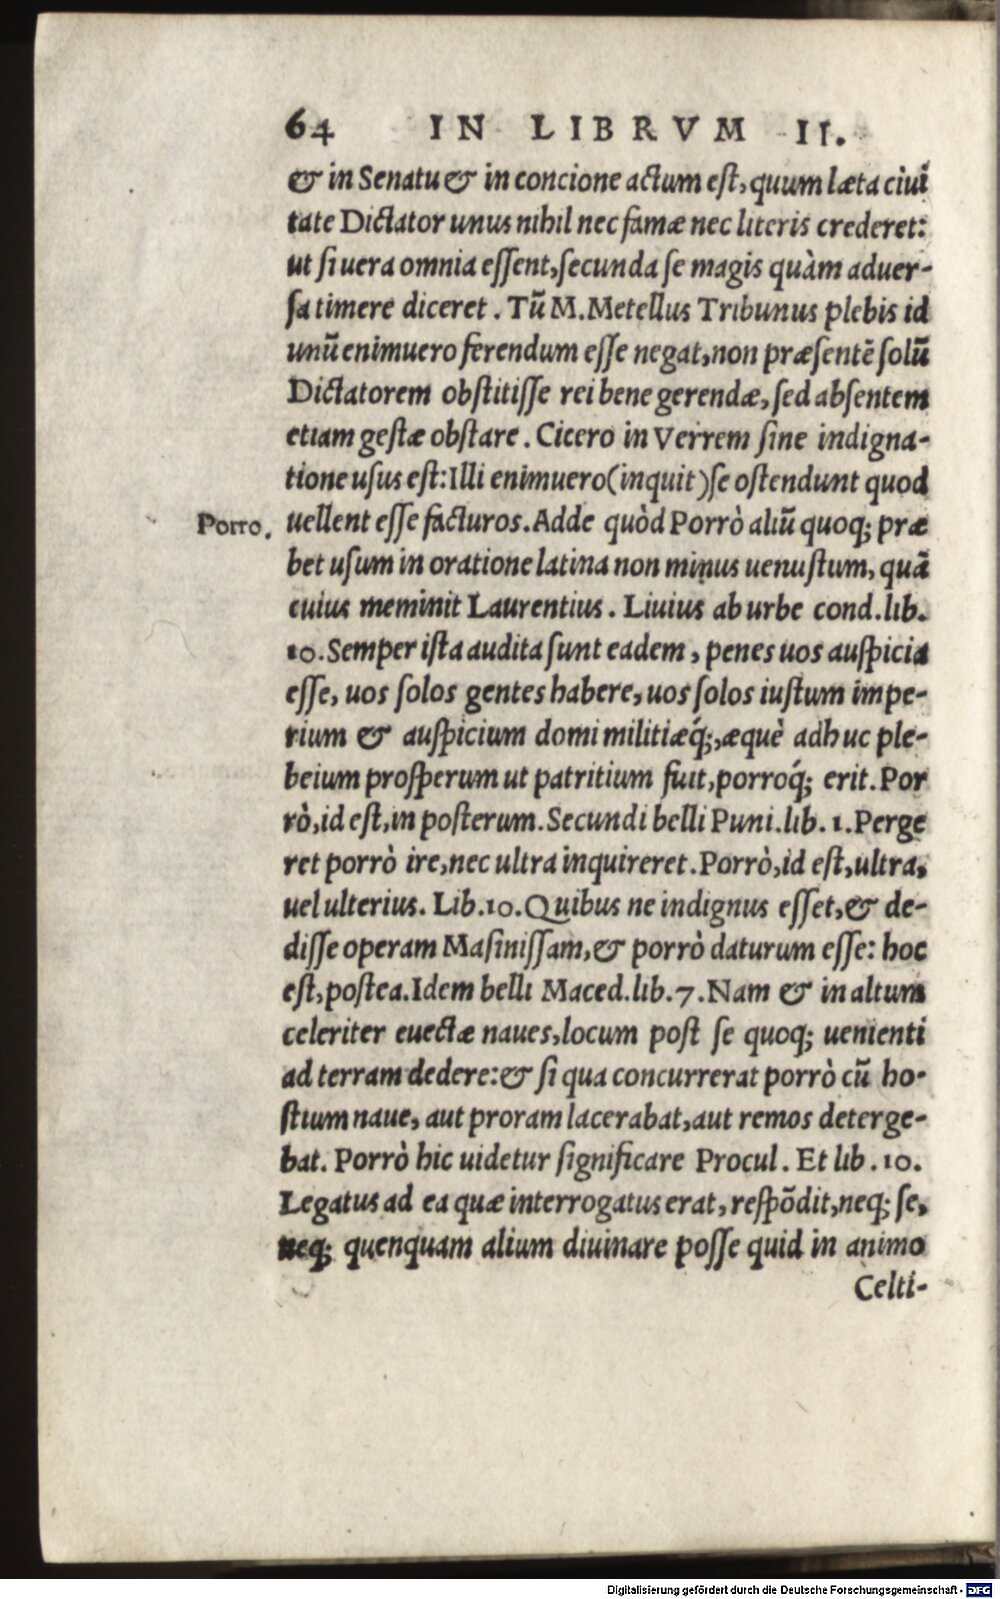 64 IN LIBRVM II.
& in Senatu & in concione actum est, quum læta ciui
tate Dictator unus nihil nec famæ nec literis crederet:
ut si uera omnia essent, secunda se magis quàm aduer-
sa timere diceret. Tũ M. Metellus Tribunus plebis id
unũ enimuero ferendum esse negat, non præsentẽ solũ
Dictatorem obstitisse rei bene gerendæ, sed absentem
etiam gestæ obstare. Cicero in Verrem sine indigna-
tione usus est: Illi enimuero (inquit) se ostendunt quod
Porro. uellent esse facturos. Adde quòd Porrò aliũ quoq; præ
bet usum in oratione latina non minus uenustum, quã
cuius meminit Laurentius. Liuius ab urbe cond. lib.
10. Semper ista audita sunt eadem, penes uos auspicia
esse, uos solos gentes habere, uos solos iustum impe-
rium & auspicium domi militiæq́;, æquè adhuc ple-
beium prosperum ut patritium fuit, porroq́; erit. Por
rò, id est, in posterum. Secundi belli Puni. lib. 1. Perge
ret porrò ire, nec ultra inquireret. Porrò, id est, ultra,
uel ulterius. Lib. 10. Quibus ne indignus esset, & de-
disse operam Masinissam, & porrò daturum esse: hoc
est, postea. Idem belli Maced. lib. 7. Nam & in altum
celeriter euectæ naues, locum post se quoq; uenienti
ad terram dedere: & si qua concurrerat porrò cũ ho-
stium naue, aut proram lacerabat, aut remos deterge-
bat. Porrò hic uidetur significare Procul. Et lib. 10.
Legatus ad ea quæ interrogatus erat, respõdit, neq; se,
neq; quenquam alium diuinare posse quid in animo
Celti-
Digitalisierung gefördert durch die Deutsche Forschungsgemeinschaft - DFG